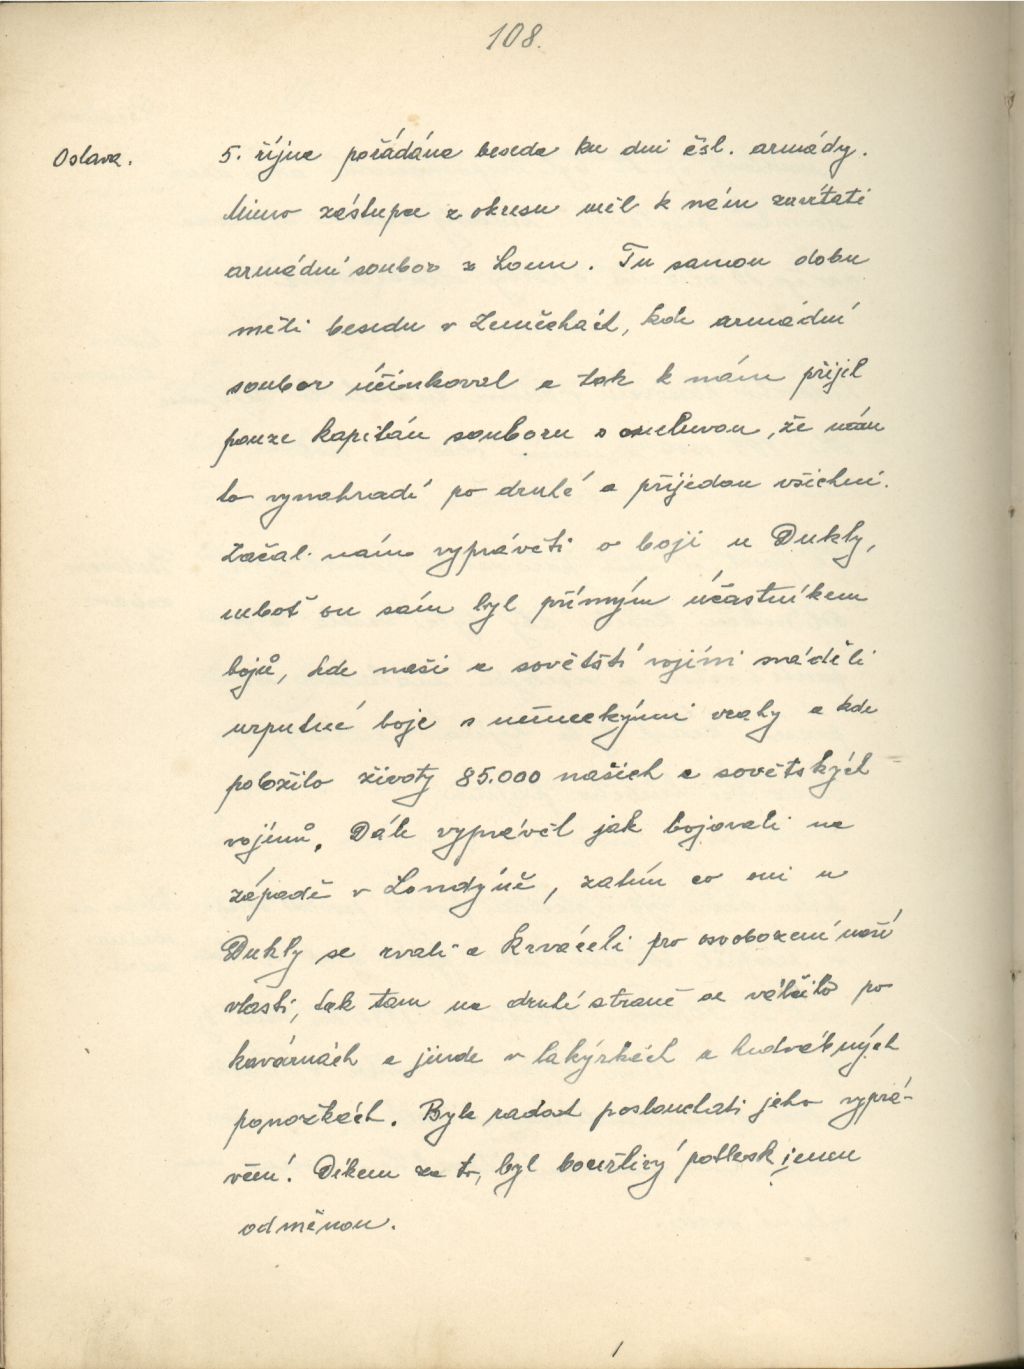 108.
Oslava.
5. října pořádána beseda ku dni čsl. armády.
Mimo zástupce z okresu měl k nám zavítati
armádní soubor z Loun. Tu samou dobu
měli besedu v Zeměchách, kde armádní
soubor účinkoval a tak k nám přijel
pouze kapitán souboru s omluvou, že nám
to vynahradí po druhé a přijedou všichni.
Začal nám vyprávěti o boji u Dukly,
neboť on sám byl přímým účastníkem
bojů, kde naši a sovětští vojíni sváděli
urputné boje s německými vrahy a kde
položilo životy 85.000 našich a sovětských
vojínů. Dále vyprávěl jak bojovali na
západě v Londýně, zatím co oni u
Dukly se rvali a krváceli pro osvobození naší
vlasti, tak tam na druhé straně se válčilo po
kavárnách a jinde v lakýrkách a hedvábných
ponožkách. Byla radost poslouchati jeho vyprá-
vění. Díkem za to, byl bouřlivý potlesk jemu
odměnou.